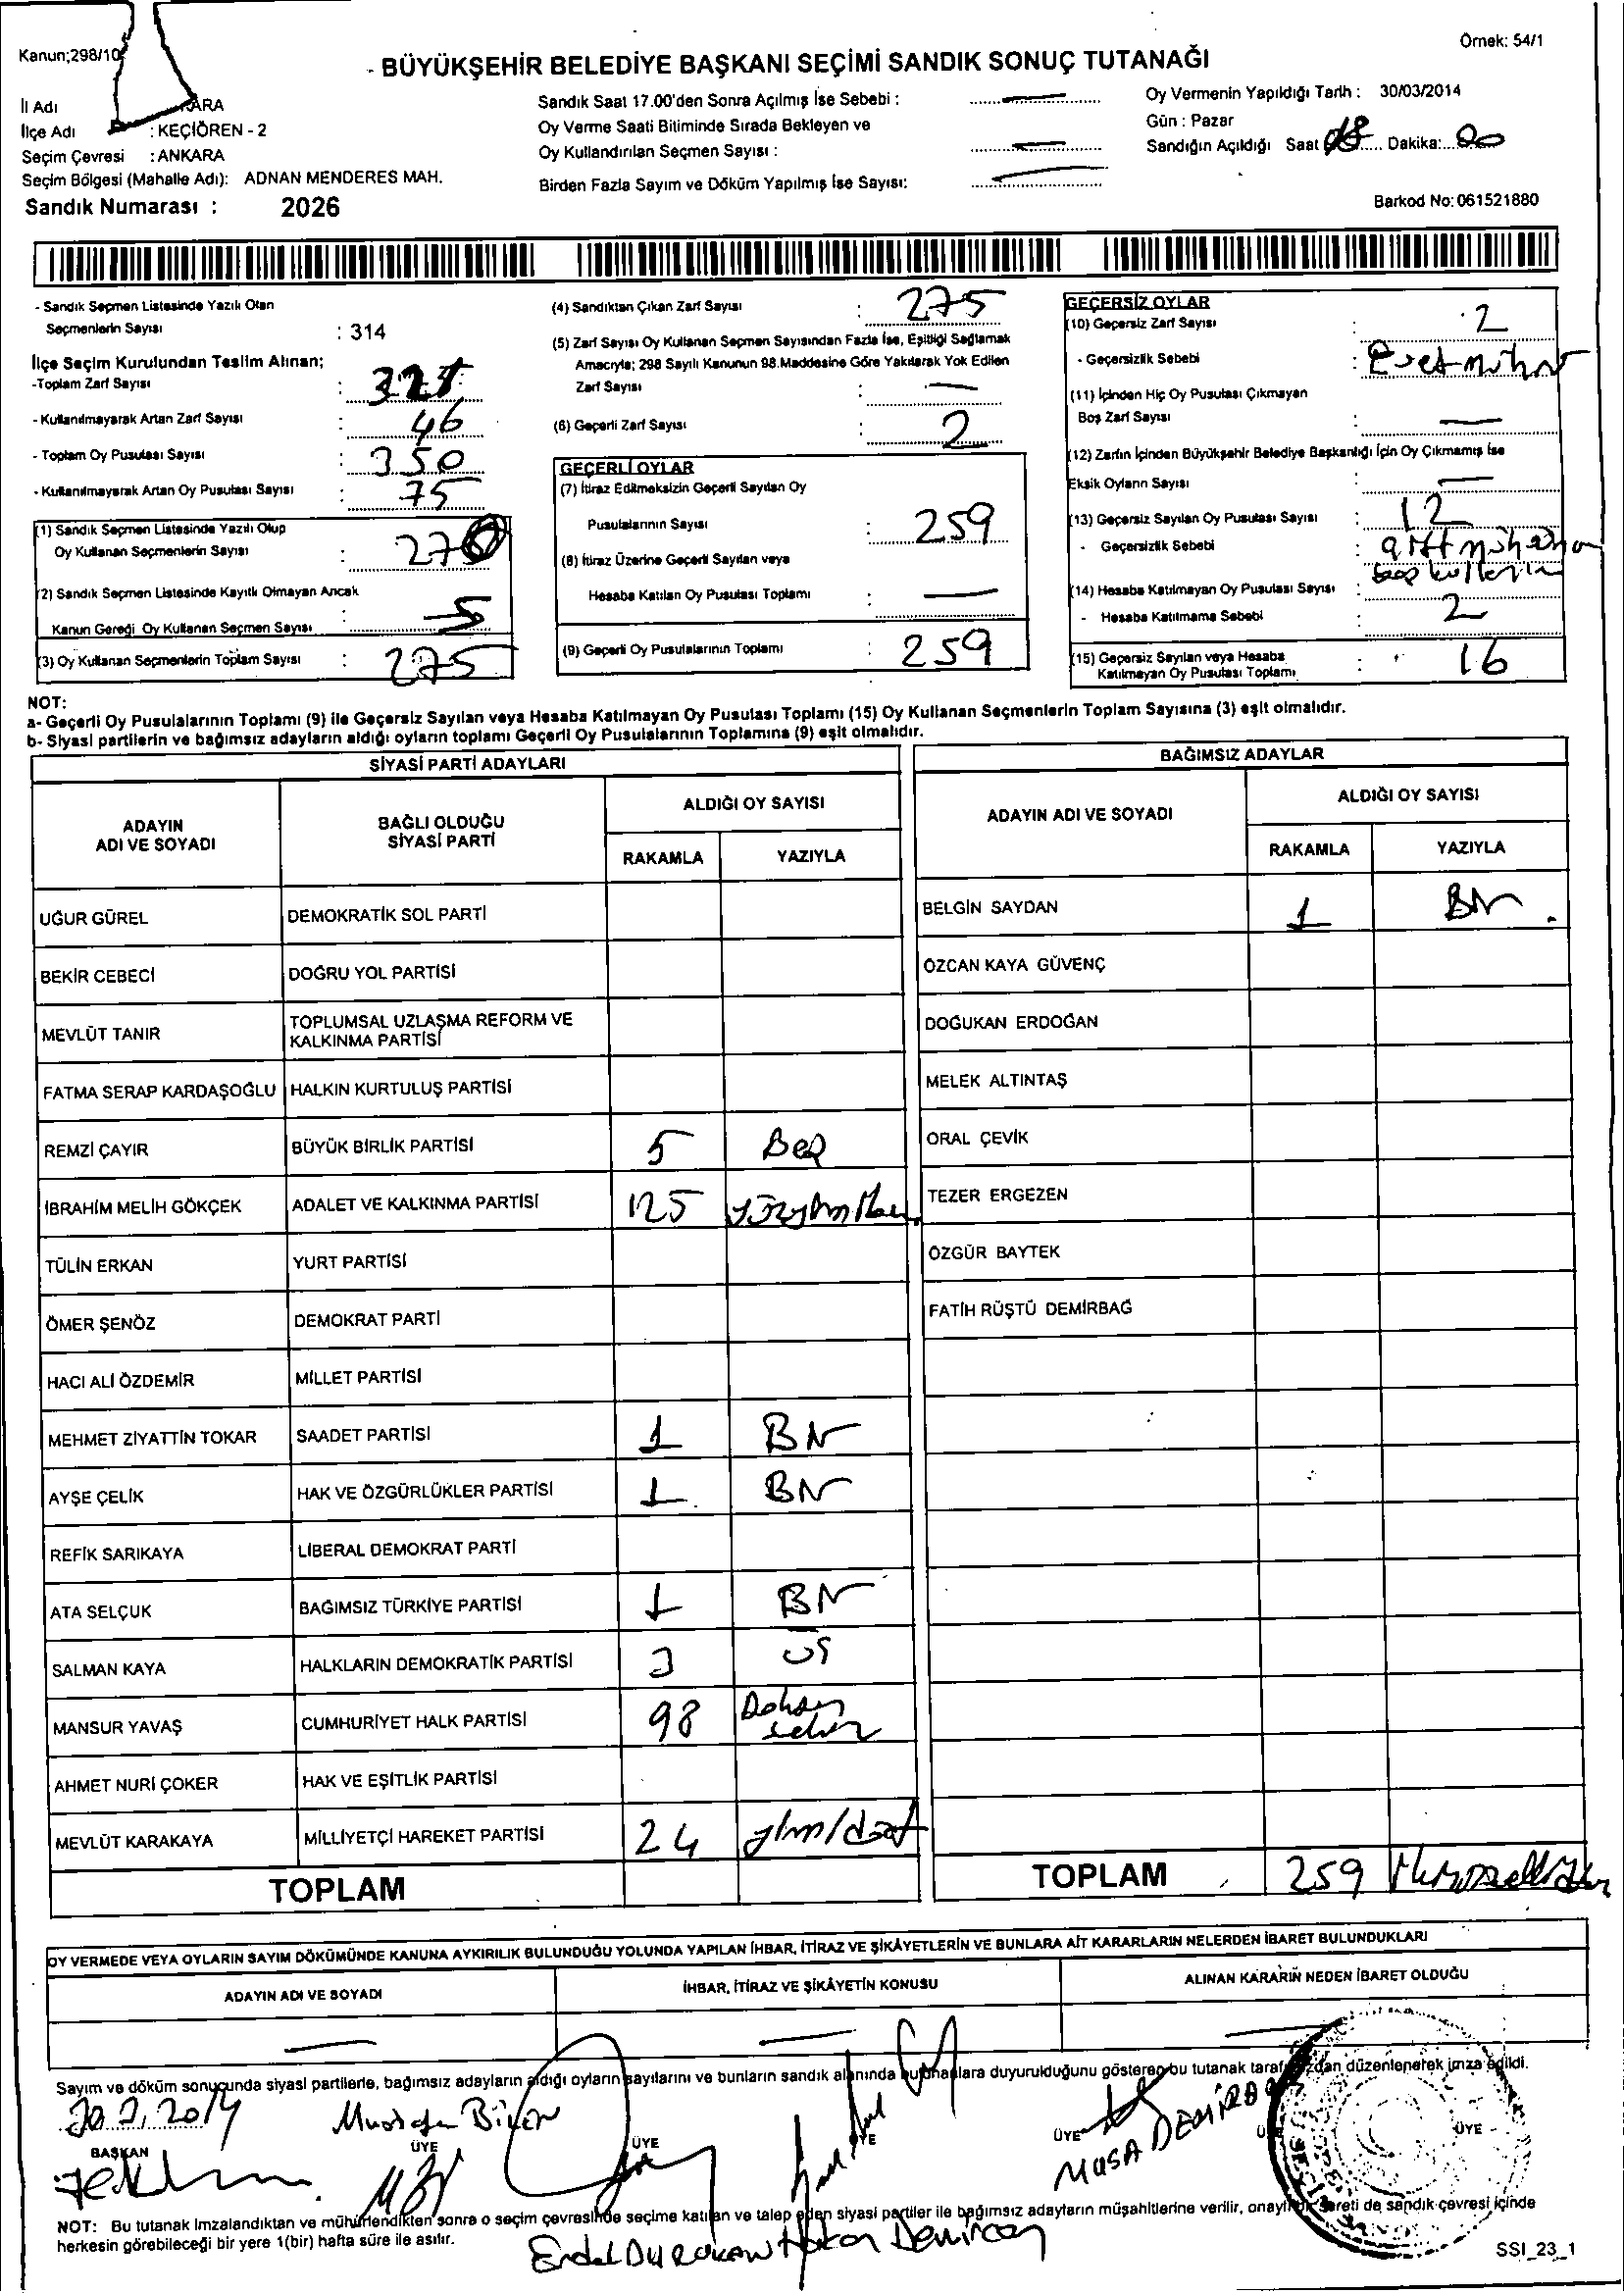 Kanun;298/10
Örnek: 54/1
BÜYÜKŞEHİR BELEDİYE BAŞKANI SEÇİMİ SANDIK SONUÇ TUTANAĞI
İl Adı ARA
İlçe Adı : KEÇİÖREN - 2
Seçim Çevresi : ANKARA
Seçim Bölgesi (Mahalle Adı): ADNAN MENDERES MAH.
Sandık Numarası : 2026
Sandık Saat 17.00'den Sonra Açılmış İse Sebebi : —
Oy Verme Saati Bitiminde Sırada Bekleyen ve
Oy Kullandırılan Seçmen Sayısı : —
Birden Fazla Sayım ve Döküm Yapılmış İse Sayısı: —
Oy Vermenin Yapıldığı Tarih : 30/03/2014
Gün : Pazar
Sandığın Açıldığı Saat 08 Dakika: 00
Barkod No: 061521880
- Sandık Seçmen Listesinde Yazılı Olan
Seçmenlerin Sayısı : 314
İlçe Seçim Kurulundan Teslim Alınan;
-Toplam Zarf Sayısı : 321
- Kullanılmayarak Artan Zarf Sayısı : 46
- Toplam Oy Pusulası Sayısı : 350
- Kullanılmayarak Artan Oy Pusulası Sayısı : 75
(1) Sandık Seçmen Listesinde Yazılı Olup
Oy Kullanan Seçmenlerin Sayısı : 270
(2) Sandık Seçmen Listesinde Kayıtlı Olmayan Ancak
Kanun Gereği Oy Kullanan Seçmen Sayısı : 5
(3) Oy Kullanan Seçmenlerin Toplam Sayısı : 275
(4) Sandıktan Çıkan Zarf Sayısı : 275
(5) Zarf Sayısı Oy Kullanan Seçmen Sayısından Fazla İse, Eşitliği Sağlamak
Amacıyla; 298 Sayılı Kanunun 98.Maddesine Göre Yakılarak Yok Edilen
Zarf Sayısı : —
(6) Geçerli Zarf Sayısı : 2
GEÇERLİ OYLAR
(7) İtiraz Edilmeksizin Geçerli Sayılan Oy
Pusulalarının Sayısı : 259
(8) İtiraz Üzerine Geçerli Sayılan veya
Hesaba Katılan Oy Pusulası Toplamı : —
(9) Geçerli Oy Pusulalarının Toplamı : 259
GEÇERSİZ OYLAR
(10) Geçersiz Zarf Sayısı : 2
- Geçersizlik Sebebi : Evet mühür
(11) İçinden Hiç Oy Pusulası Çıkmayan
Boş Zarf Sayısı : —
(12) Zarfın İçinden Büyükşehir Belediye Başkanlığı İçin Oy Çıkmamış İse
Eksik Oyların Sayısı : —
(13) Geçersiz Sayılan Oy Pusulası Sayısı : 12
- Geçersizlik Sebebi :
(14) Hesaba Katılmayan Oy Pusulası Sayısı : 2
- Hesaba Katılmama Sebebi
(15) Geçersiz Sayılan veya Hesaba
Katılmayan Oy Pusulası Toplamı : 16
NOT:
a- Geçerli Oy Pusulalarının Toplamı (9) ile Geçersiz Sayılan veya Hesaba Katılmayan Oy Pusulası Toplamı (15) Oy Kullanan Seçmenlerin Toplam Sayısına (3) eşit olmalıdır.
b- Siyasi partilerin ve bağımsız adayların aldığı oyların toplamı Geçerli Oy Pusulalarının Toplamına (9) eşit olmalıdır.
SİYASİ PARTİ ADAYLARI
ADAYIN ADI VE SOYADI
BAĞLI OLDUĞU SİYASİ PARTİ
ALDIĞI OY SAYISI
RAKAMLA YAZIYLA
UĞUR GÜREL DEMOKRATİK SOL PARTİ
BEKİR CEBECİ DOĞRU YOL PARTİSİ
MEVLÜT TANIR TOPLUMSAL UZLAŞMA REFORM VE KALKINMA PARTİSİ
FATMA SERAP KARDAŞOĞLU HALKIN KURTULUŞ PARTİSİ
REMZİ ÇAYIR BÜYÜK BİRLİK PARTİSİ 5 Beş
İBRAHİM MELİH GÖKÇEK ADALET VE KALKINMA PARTİSİ 125
TÜLİN ERKAN YURT PARTİSİ
ÖMER ŞENÖZ DEMOKRAT PARTİ
HACI ALİ ÖZDEMİR MİLLET PARTİSİ
MEHMET ZİYATTİN TOKAR SAADET PARTİSİ 1 Bir
AYŞE ÇELİK HAK VE ÖZGÜRLÜKLER PARTİSİ 1 Bir
REFİK SARIKAYA LİBERAL DEMOKRAT PARTİ
ATA SELÇUK BAĞIMSIZ TÜRKİYE PARTİSİ 1 Bir
SALMAN KAYA HALKLARIN DEMOKRATİK PARTİSİ 3 üç
MANSUR YAVAŞ CUMHURİYET HALK PARTİSİ 98 Doksan sekiz
AHMET NURİ ÇOKER HAK VE EŞİTLİK PARTİSİ
MEVLÜT KARAKAYA MİLLİYETÇİ HAREKET PARTİSİ 24
TOPLAM
BAĞIMSIZ ADAYLAR
ADAYIN ADI VE SOYADI
ALDIĞI OY SAYISI
RAKAMLA YAZIYLA
BELGİN SAYDAN 1 Bir
ÖZCAN KAYA GÜVENÇ
DOĞUKAN ERDOĞAN
MELEK ALTINTAŞ
ORAL ÇEVİK
TEZER ERGEZEN
ÖZGÜR BAYTEK
FATİH RÜŞTÜ DEMİRBAĞ
TOPLAM 259
OY VERMEDE VEYA OYLARIN SAYIM DÖKÜMÜNDE KANUNA AYKIRILIK BULUNDUĞU YOLUNDA YAPILAN İHBAR, İTİRAZ VE ŞİKÂYETLERİN VE BUNLARA AİT KARARLARIN NELERDEN İBARET BULUNDUKLARI
ADAYIN ADI VE SOYADI
İHBAR, İTİRAZ VE ŞİKÂYETİN KONUSU
ALINAN KARARIN NEDEN İBARET OLDUĞU
— — —
Sayım ve döküm sonucunda siyasi partilerle, bağımsız adayların aldığı oyların sayılarını ve bunların sandık alanında bulunanlara duyurulduğunu gösteren bu tutanak tarafımızdan düzenlenerek imza edildi.
30.3.2014
BAŞKAN ÜYE ÜYE ÜYE ÜYE ÜYE
MUSA DEMİR
NOT: Bu tutanak İmzalandıktan ve mühürlendikten sonra o seçim çevresinde seçime katılan ve talep eden siyasi partiler ile bağımsız adayların müşahitlerine verilir, onaylı bir sureti de sandık çevresi içinde
herkesin görebileceği bir yere 1(bir) hafta süre ile asılır.
Hakan Demircan
SSI_23_1